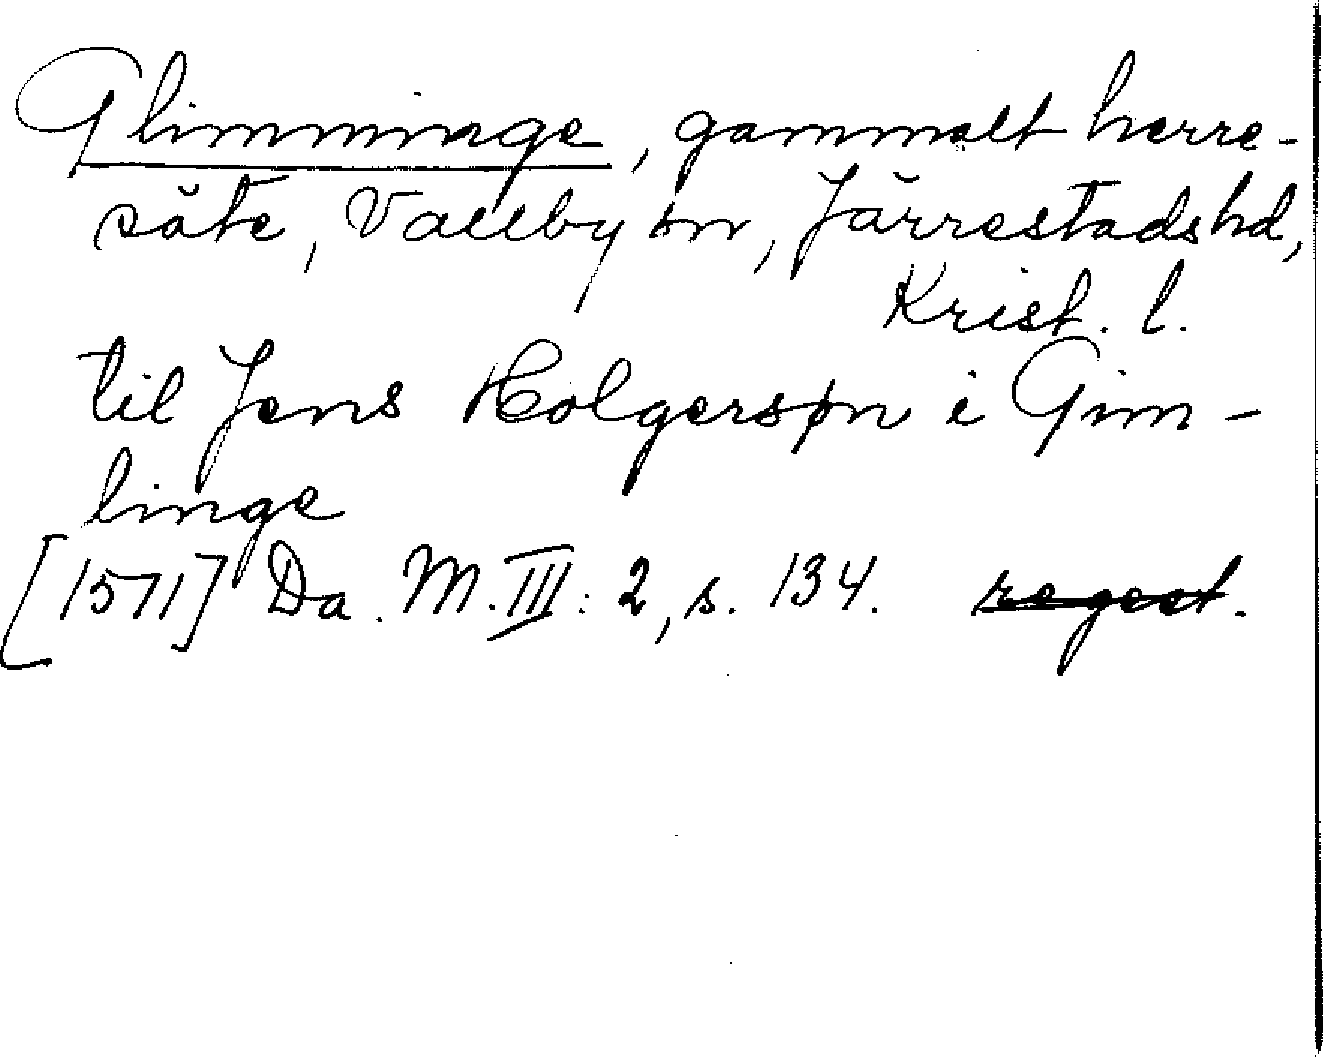 Glimminge, gammalt herre-
säte, Vallby sn, Järrestads hd,
Krist. l.
til Jens Holgersøn i Gim-
linge
[1571] Da. M. III: 2, s. 134. regest.